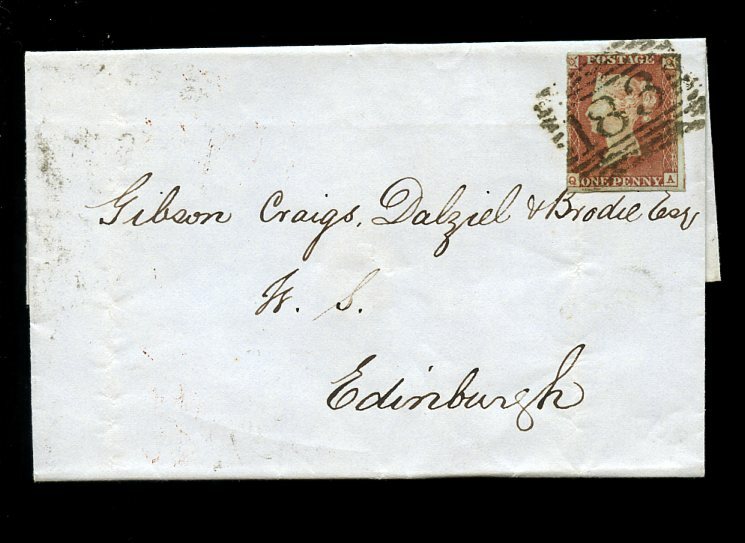 POSTAGE
183
Q A
ONE PENNY
Gibson Craigs, Dalziel & Brodie Esqr
W. S.
Edinburgh